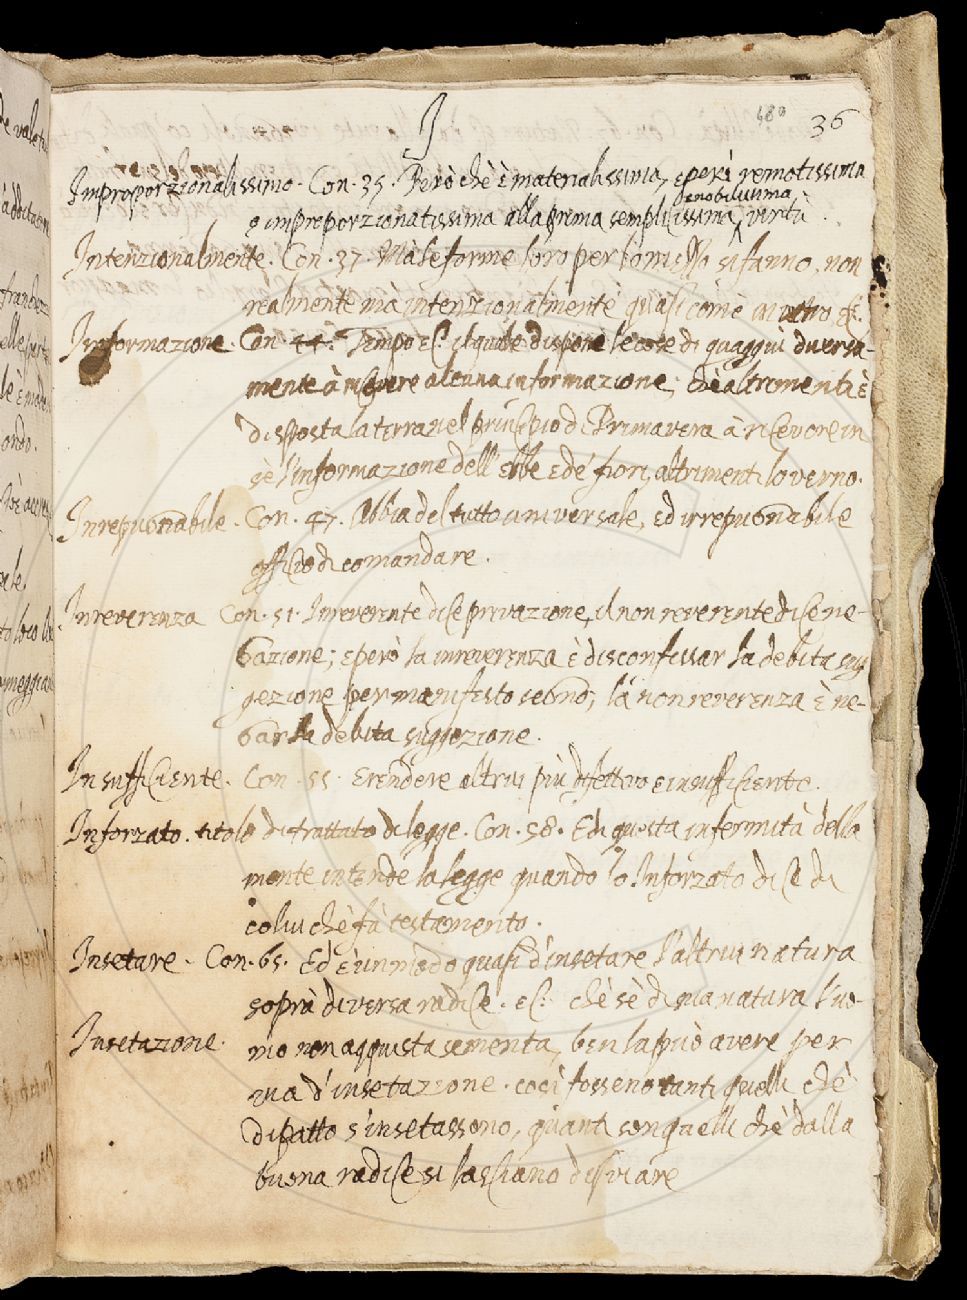 I
480
36
Improporzionalissimo. Con. 35. Però chè è materialissima, e però remotissima
e improporzionatissima alla prima semplicissima, e nobilissima virtù.
Intenzionalmente. Con. 37. Mà le forme loro per lo messo si fanno, non
realmente mà intenzionalmente quasi come in vetro &c.
Informazione. Con. 44. Tempo &c. il quale dispone le cose di quaggiù diversa-
mente à ricevere alcuna informazione; chè altrimenti è
disposta la terra nel principio di Primavera à ricevere in
sè l'informazione dell'erbe e de' fiori, altrimenti lo verno.
Inrepugnabile. Con. 47. Abbia del tutto universale, ed irrepugnabile
officio di comandare.
Inreverenza Con. 51. Inreverente dice privazione, il non reverente dice ne-
gazione; e però la inreverenza è disconfessar la debita sug
gezione per manifesto segno; la non reverenza è ne-
gar la debita suggezione.
Insufficiente. Con. 55. E rendere altrui più difettivo e insufficiente.
Inforzato. titolo di trattato di legge. Con. 58. E di questa infermità della
mente intende la legge quando lo Inforzato dice di
colui chè fà testamento.
Insetare. Con. 65. Ed è un modo quasi d'insetare l'altrui natura
soprà diversa radice. &c. chè sè di sua natura l'uo-
Insetazione. mo non acquista sementa, ben la può avere per
via d'insetazione. così fosseno tanti quelli chè
di fatto s'insetassono, quanti son quelli chè dalla
buona radice si lasciano disviare